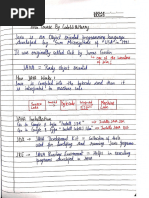 Java Course By Codewithharry
Java is an Object oriented programming language
developed by "Sun Microsystems of "USA" in "1991
It was originally called Oak by James Goslin
one of the inventors
of Java
JAVA = Purely Object Oriented
How JAVA Works?
Java is compiled into the bytecode and then it is
interpreted to machine code.
Source
Code
Bytecode
Machine
Code
JAVA Installation
Go to Google & type "Install JDK"
Go to Google & type "Install
JDK = JAVA Development Kit = Collection of tools
used for developing and running JAVA programs
JRE = JAVA Runtime Environment = Helps in executing
programs developed in JAVA